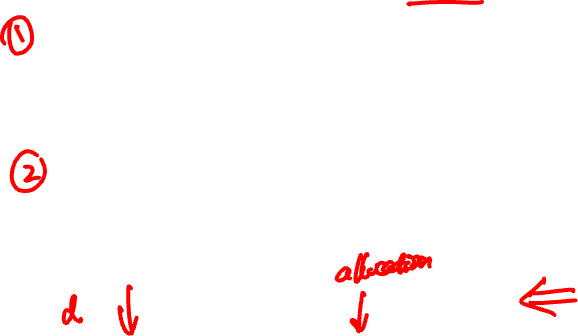 ①
②
allocation
d ↓ ↓ ⇐